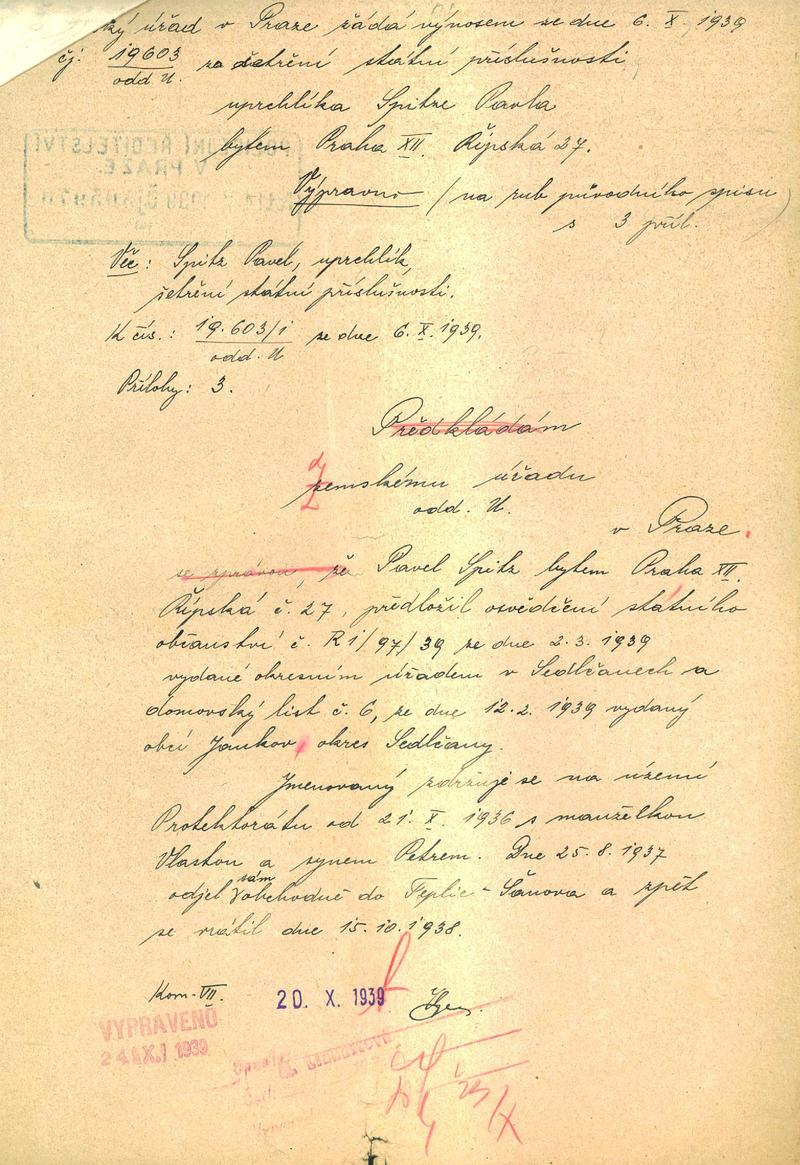 ský úřad v Praze žádá výnosem ze dne 6. X. 1939
čj. 19603 za šetření státní příslušnosti
odd U.
uprchlíka Spitze Pavla
bytem Praha XII. Řípská 27.
POLICEJNÍ ŘEDITELSTVÍ
V PRAZE
1939
Výpravno / na rub původního spisu
s 3 příl.
Věc: Spitz Pavel, uprchlík,
šetření státní příslušnosti.
K čís.: 19.603/1 ze dne 6. X. 1939.
odd. U
Přílohy: 3.
Předkládám
zemskému úřadu
odd. U.
v Praze.
se zprávou, že Pavel Spitz bytem Praha XII.
Řípská č. 27, předložil osvědčení státního
občanství č. R1/97/39 ze dne 2.3. 1939
vydané okresním úřadem v Sedlčanech a
domovský list č. 6, ze dne 12.2. 1939 vydaný
obcí Jankov, okres Sedlčany.
Jmenovaný zdržuje se na území
Protektorátu od 21. X. 1936 s manželkou
Vlastou a synem Petrem. Dne 25.8.1937
odjel sám obchodně do Teplic-Šanova a zpět
se vrátil dne 15.10.1938.
Kom. VII.
20. X. 1939
VYPRAVENO
24. X. 1939